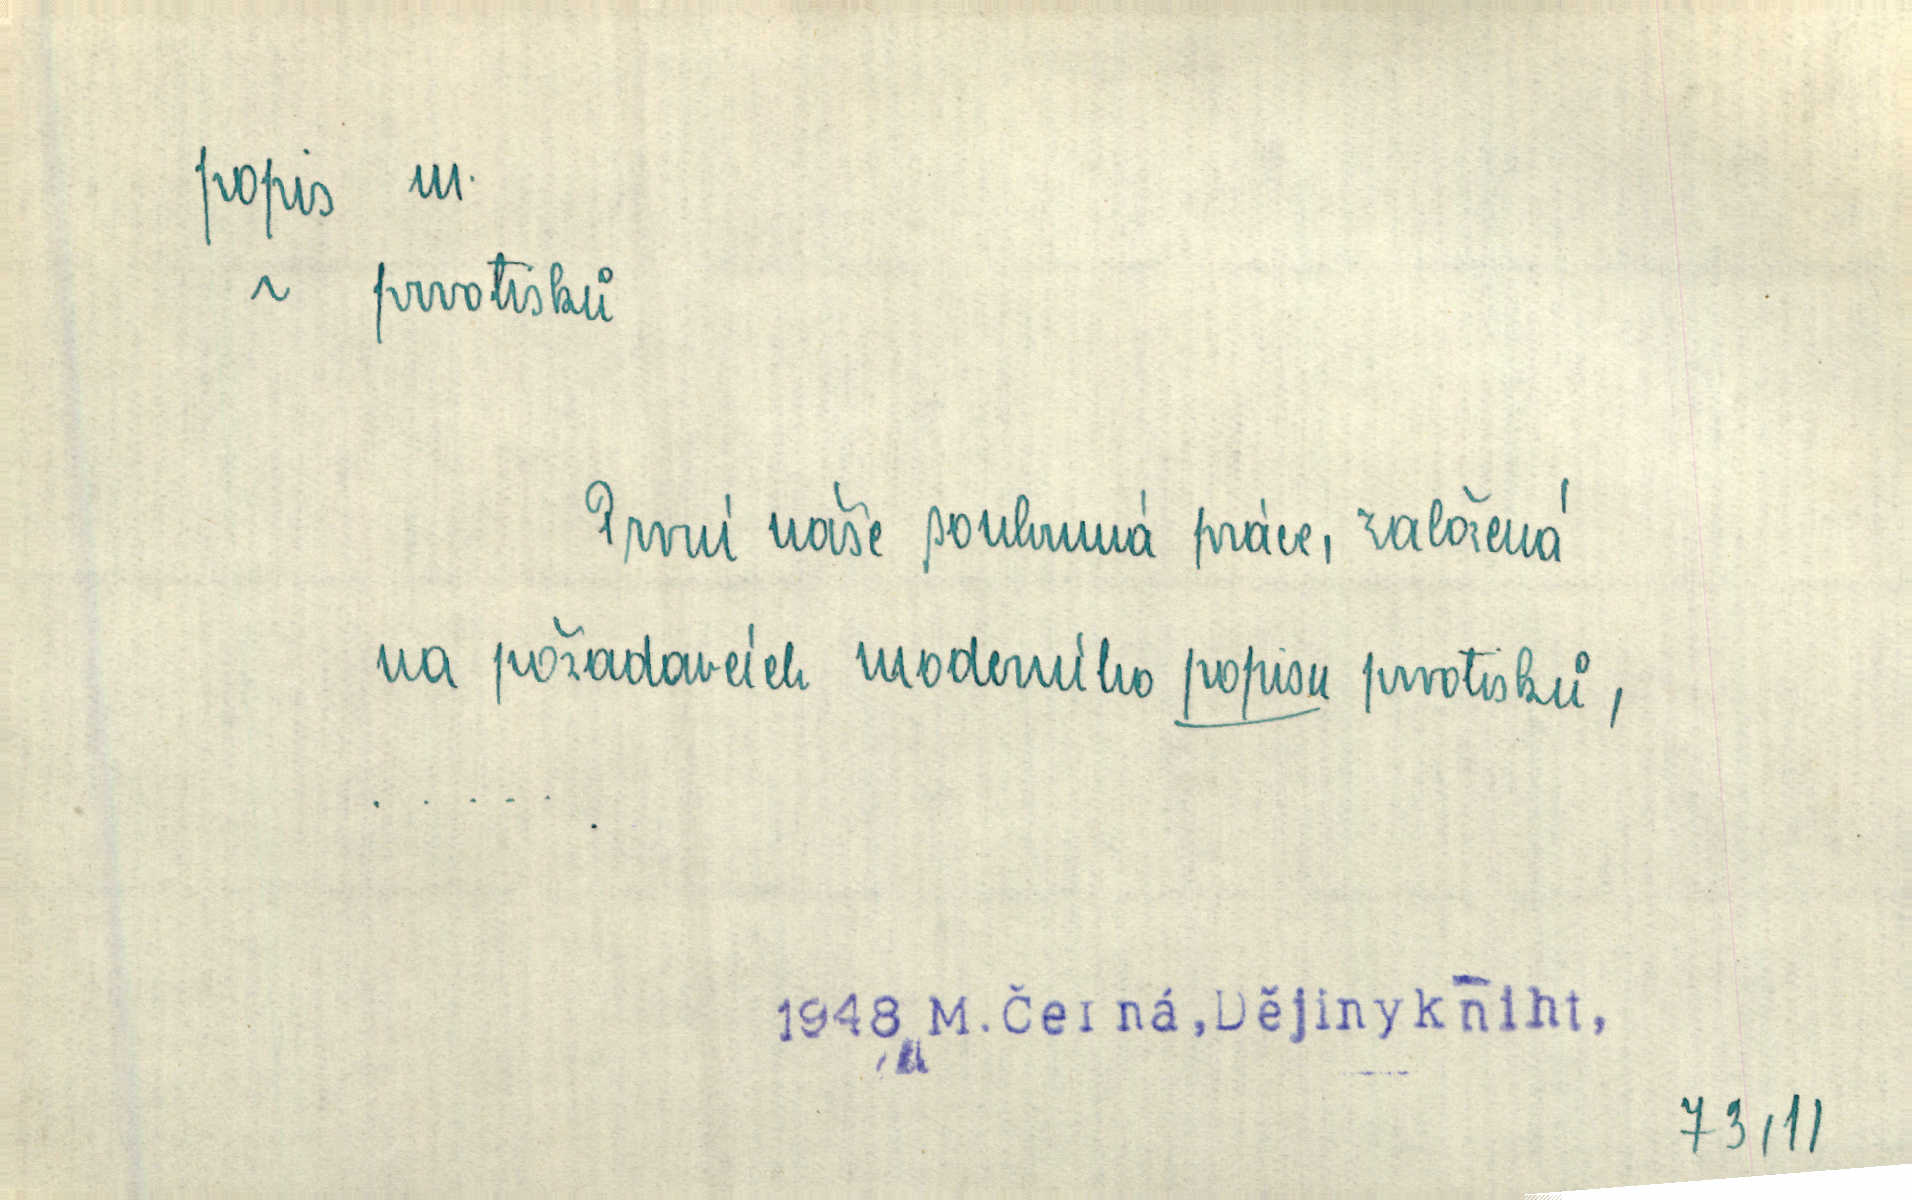 popis m.
~ prvotisků
První naše souhrnná práce, založená
na požadavcích moderního popisu prvotisků,
. . . . . .
1948 M. Černá, Dějiny kniht,
73,11